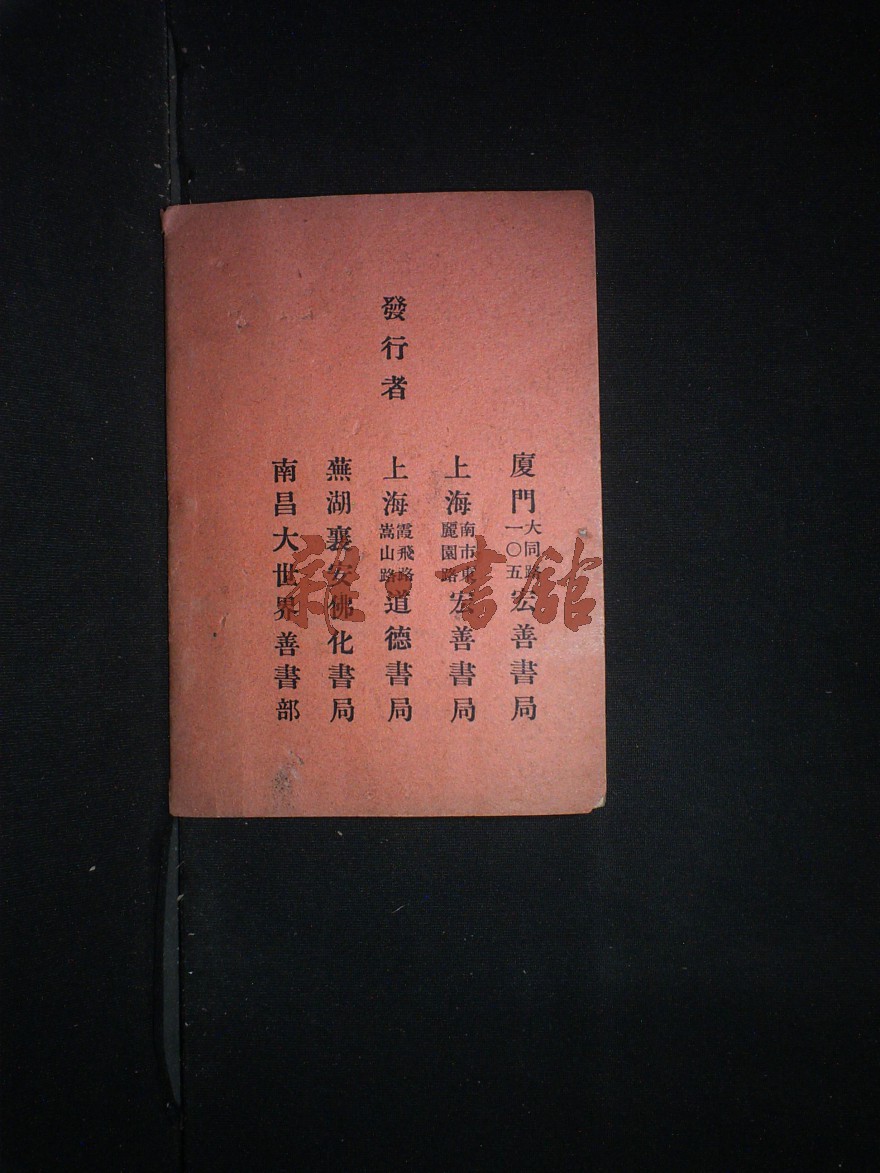 發行者
廈門大同路一〇五宏善書局
上海南市東麗園路宏善書局
上海霞飛路嵩山路道德書局
蕪湖襄安佛化書局
南昌大世界善書部